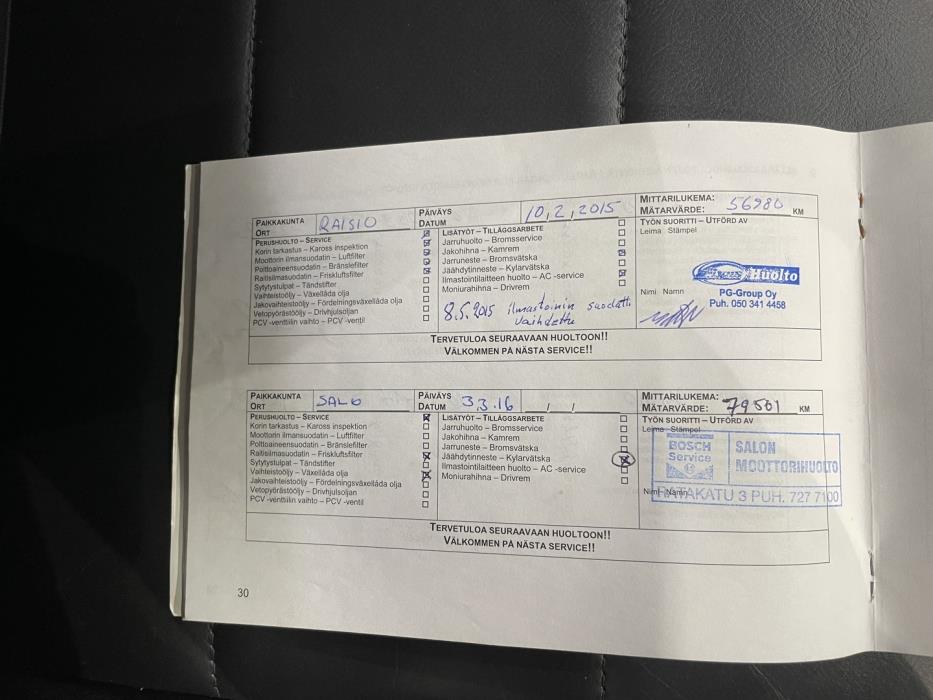 PAIKKAKUNTA
ORT
RAISIO
PÄIVÄYS
DATUM
10,2,2015
MITTARILUKEMA:
MÄTARVÄRDE: 56980 KM
PERUSHUOLTO – SERVICE
Korin tarkastus – Kaross inspektion
Moottorin ilmansuodatin – Luftfilter
Polttoaineensuodatin – Bränslefilter
Raitisilmasuodatin – Friskluftsfilter
Sytytystulpat – Tändstifter
Vaihteistoöljy – Växellåda olja
Jakovaihteistoöljy – Fördelningsväxellåda olja
Vetopyörästööljy – Drivhjulsoljan
PCV -venttiilin vaihto – PCV -ventil
LISÄTYÖT – TILLÄGGSARBETE
Jarruhuolto – Bromsservice
Jakohihna – Kamrem
Jarruneste – Bromsvätska
Jäähdytinneste – Kylarvätska
Ilmastointilaitteen huolto – AC -service
Moniurahihna – Drivrem
8.5.2015 ilmastoinnin suodatti
vaihdettu
TYÖN SUORITTI – UTFÖRD AV
Leima Stämpel
Huolto
Nimi Namn
PG-Group Oy
Puh. 050 341 4458
TERVETULOA SEURAAVAAN HUOLTOON!!
VÄLKOMMEN PÅ NÄSTA SERVICE!!
PAIKKAKUNTA
ORT
SALO
PÄIVÄYS
DATUM
3.3.16
/ /
MITTARILUKEMA:
MÄTARVÄRDE: 79501 KM
PERUSHUOLTO – SERVICE
Korin tarkastus – Kaross inspektion
Moottorin ilmansuodatin – Luftfilter
Polttoaineensuodatin – Bränslefilter
Raitisilmasuodatin – Friskluftsfilter
Sytytystulpat – Tändstifter
Vaihteistoöljy – Växellåda olja
Jakovaihteistoöljy – Fördelningsväxellåda olja
Vetopyörästööljy – Drivhjulsoljan
PCV -venttiilin vaihto – PCV -ventil
LISÄTYÖT – TILLÄGGSARBETE
Jarruhuolto – Bromsservice
Jakohihna – Kamrem
Jarruneste – Bromsvätska
Jäähdytinneste – Kylarvätska
Ilmastointilaitteen huolto – AC -service
Moniurahihna – Drivrem
TYÖN SUORITTI – UTFÖRD AV
Leima Stämpel
BOSCH
Service
SALON
MOOTTORIHUOLTO
Nimi Namn
RATAKATU 3 PUH. 727 7100
TERVETULOA SEURAAVAAN HUOLTOON!!
VÄLKOMMEN PÅ NÄSTA SERVICE!!
30